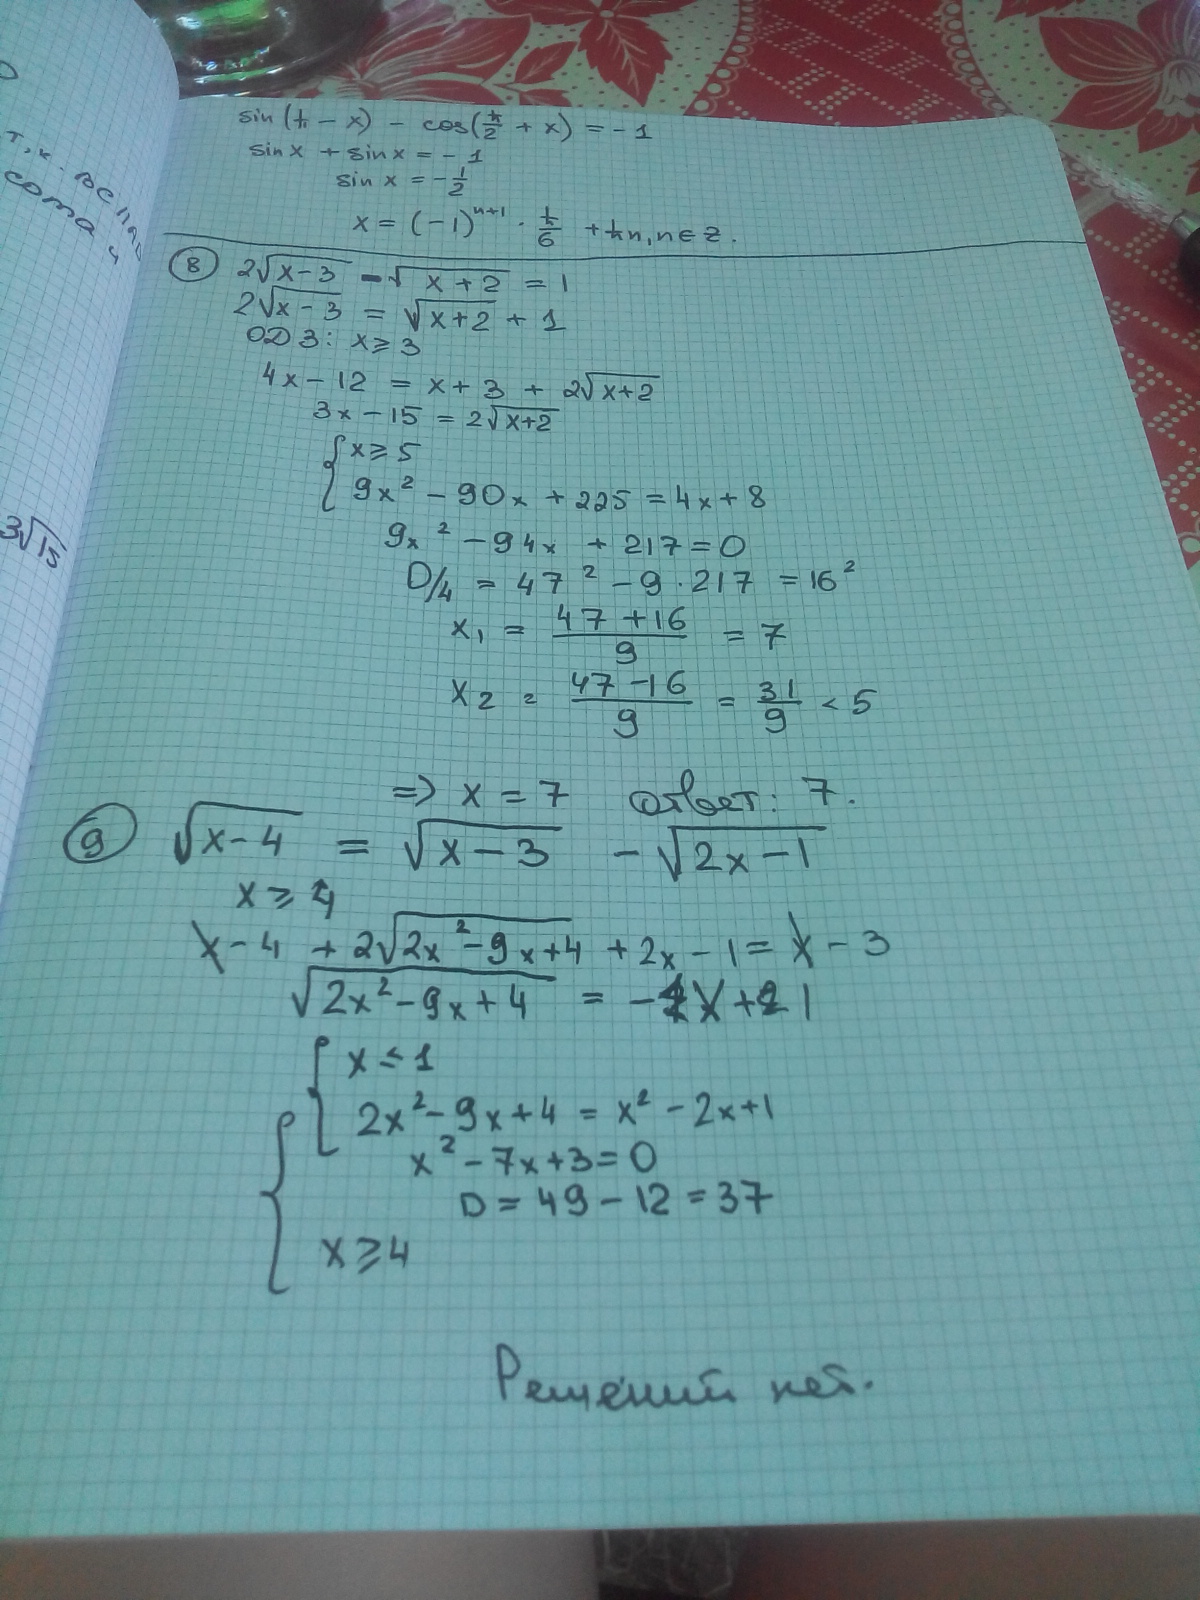 sin(π − x) − cos(π/2 + x) = −1
sin x + sin x = −1
sin x = −1/2
x = (−1)^(n+1) · π/6 + πn, n ∈ Z.
8 2√(x−3) − √(x+2) = 1
2√(x−3) = √(x+2) + 1
ОДЗ: x ⩾ 3
4x − 12 = x + 3 + 2√(x+2)
3x − 15 = 2√(x+2)
{ x ⩾ 5
9x² − 90x + 225 = 4x + 8
9x² − 94x + 217 = 0
D/4 = 47² − 9 · 217 = 16²
x₁ = (47 + 16)/9 = 7
x₂ = (47 − 16)/9 = 31/9 < 5
=> x = 7 Ответ: 7.
9 √(x−4) = √(x−3) − √(2x−1)
x ⩾ 4
x − 4 + 2√(2x²−9x+4) + 2x − 1 = x − 3
√(2x²−9x+4) = −x + 1
{ x ⩽ 1
2x² − 9x + 4 = x² − 2x + 1
x² − 7x + 3 = 0
D = 49 − 12 = 37
x ⩾ 4
Решений нет.
т.к.
сота
3√15